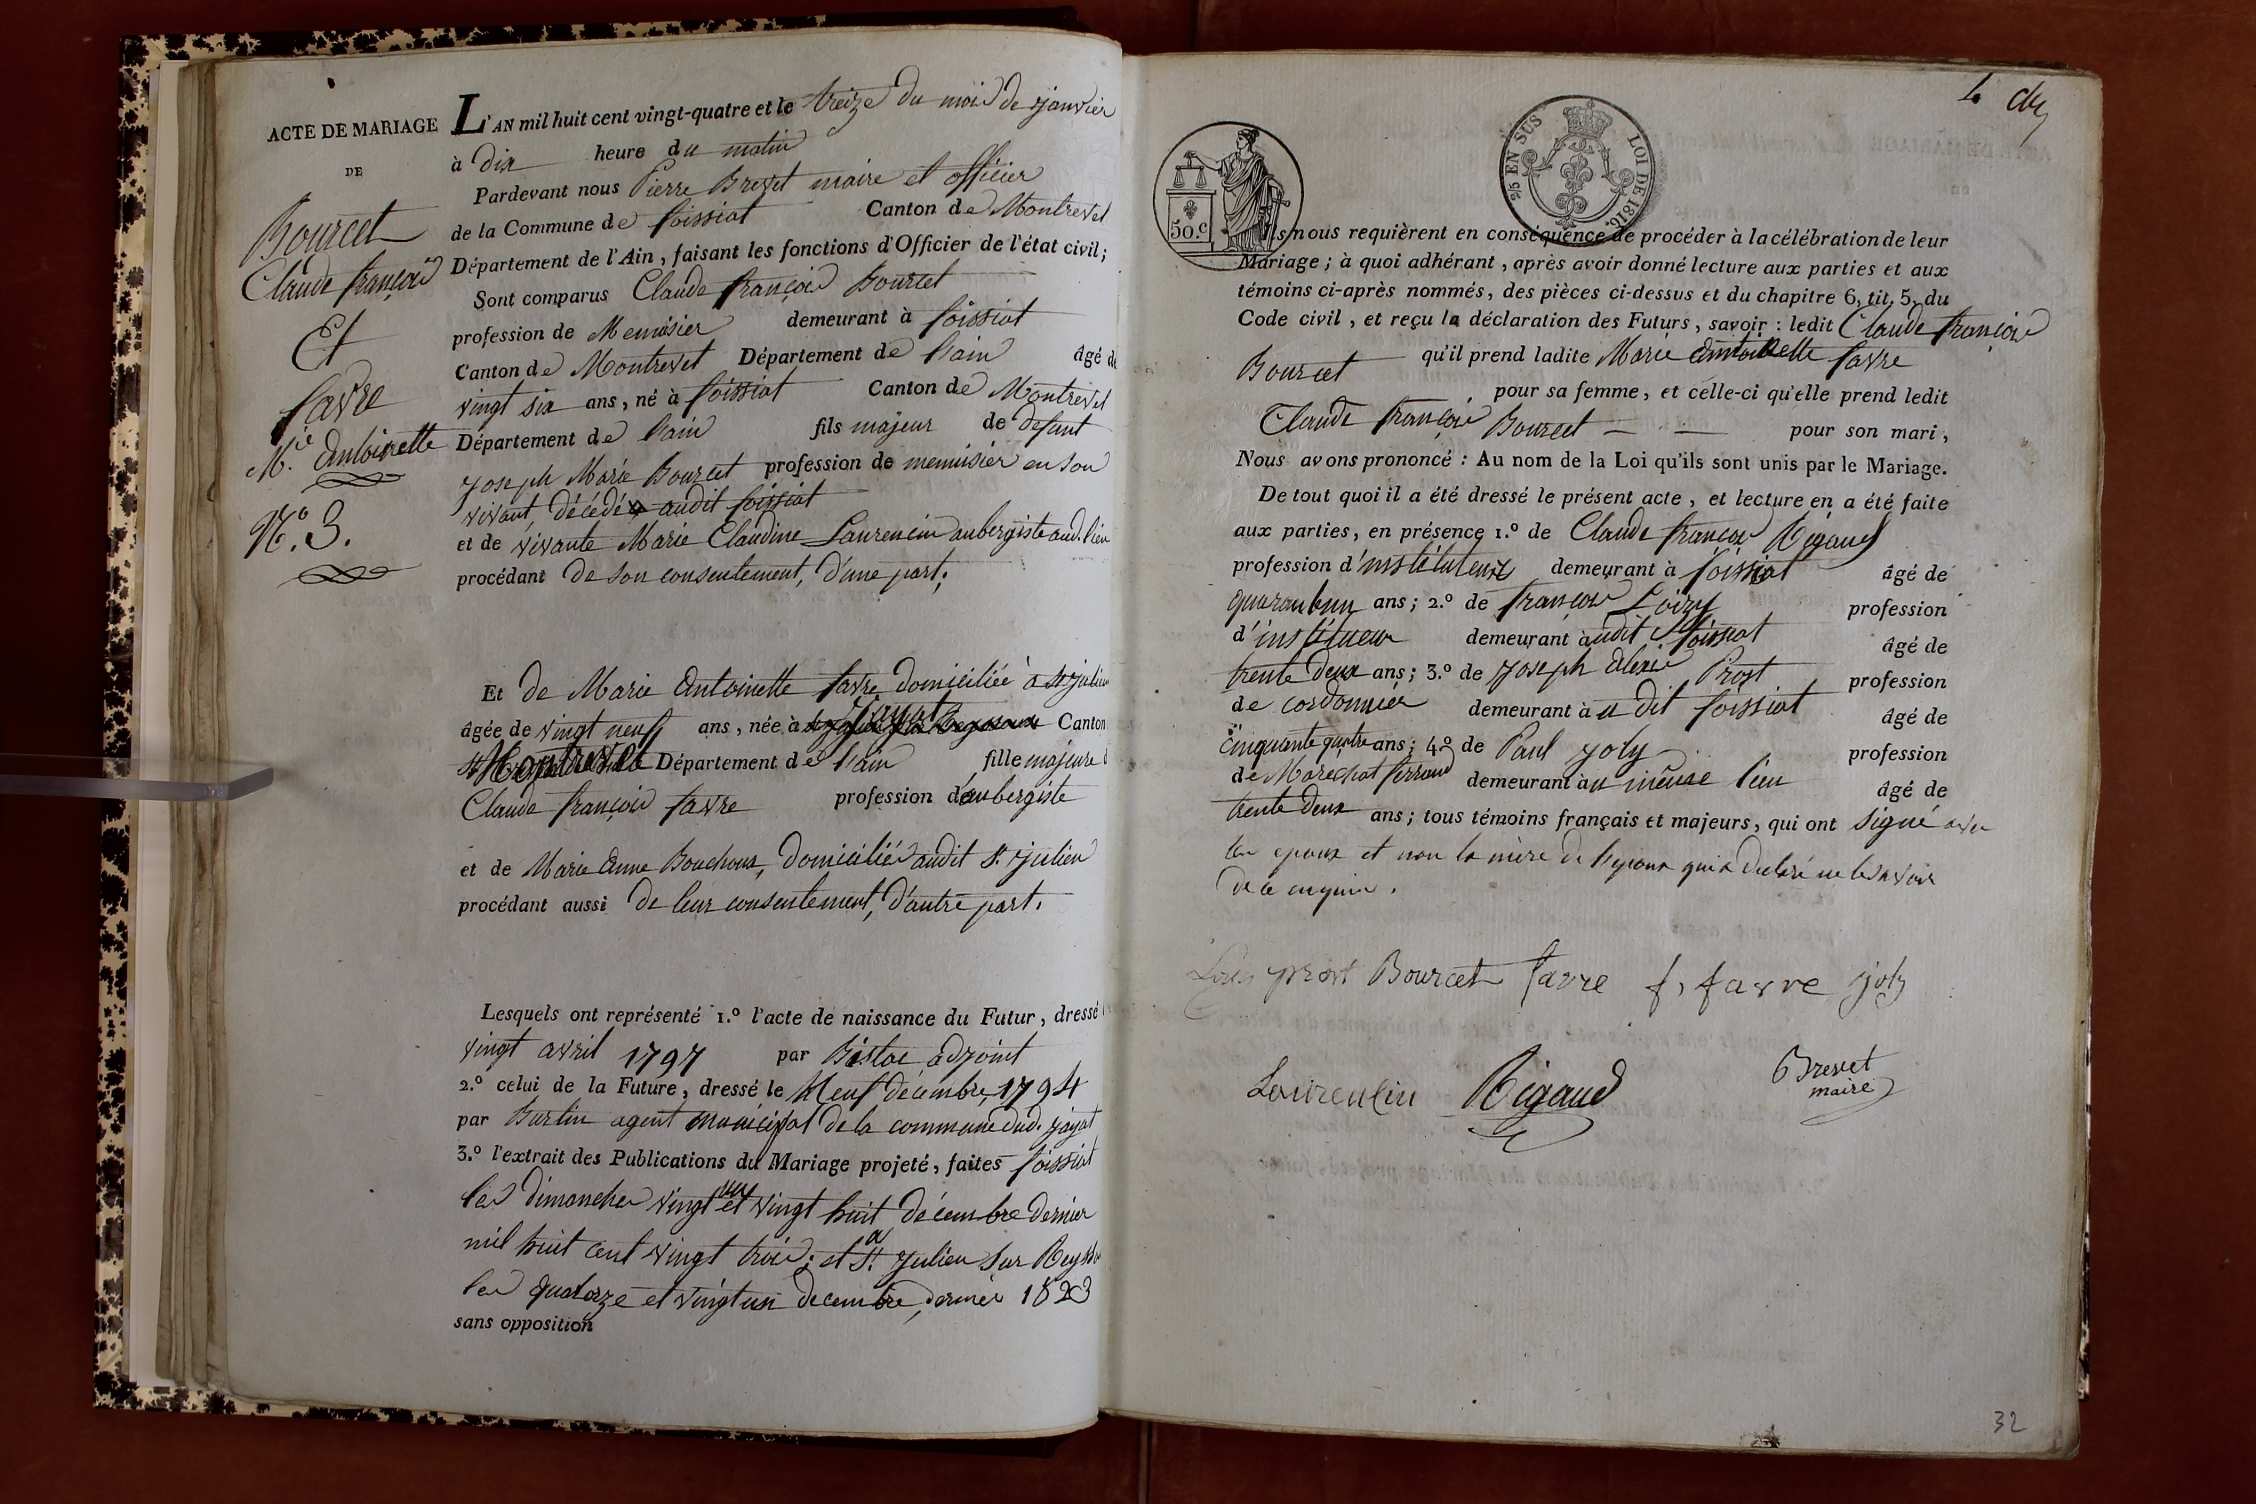 ACTE DE MARIAGE
DE
Bourcet
Claude françois
Et
favre
M.ie Antoinette
N.o 3.
L'AN mil huit cent vingt-quatre et le treize du mois de janvier
à dix heure du matin
Pardevant nous Pierre Brevet maire et officier
de la Commune de foissiat Canton de Montrevel
Département de l'Ain, faisant les fonctions d'Officier de l'état civil;
Sont comparus Claude françois Bourcet
profession de Menuisier demeurant à foissiat
Canton de Montrevel Département de l'ain âgé de
vingt six ans, né à foissiat Canton de Montrevel
Département de l'ain fils majeur de defunt
joseph Marie Bourcet profession de menuisier en son
vivant décédé audit foissiat
et de vivante Marie Claudine Laurencin aubergiste aud. lieu
procédant de son consentement, d'une part;
Et de Marie Antoinette favre domiciliée à st julien
âgée de vingt neuf ans, née à jayat Canton
Montrevel Département de l'ain fille majeure d
Claude françois favre profession d'aubergiste
et de Marie Anne Bouchoux, domiciliés audit st. julien
procédant aussi de leur consentement, d'autre part.
Lesquels ont représenté 1.º l'acte de naissance du Futur, dressé
vingt avril 1797 par adjoint
2.º celui de la Future, dressé le Neuf décembre 1794
par Burlin agent municipal de la commune dud. jayat
3.º l'extrait des Publications du Mariage projeté, faites foissiat
les dimanches vingt un et vingt huit décembre dernier
mil huit cent vingt trois; et a st. julien sur Reyss
les quatorze et vingt un decembre dernier 1823
sans opposition
4
50.c
2/5 EN SUS LOI DE 1816.
Ils nous requièrent en conséquence de procéder à la célébration de leur
Mariage; à quoi adhérant, après avoir donné lecture aux parties et aux
témoins ci-après nommés, des pièces ci-dessus et du chapitre 6, tit. 5, du
Code civil, et reçu la déclaration des Futurs, savoir: ledit Claude françois
Bourcet qu'il prend ladite Marie Antoinette favre
pour sa femme, et celle-ci qu'elle prend ledit
Claude françois Bourcet — — pour son mari,
Nous avons prononcé: Au nom de la Loi qu'ils sont unis par le Mariage.
De tout quoi il a été dressé le présent acte, et lecture en a été faite
aux parties, en présence 1.º de Claude françois Rigaud
profession d'instituteur demeurant à foissiat âgé de
quarante un ans; 2.º de françois Loizy profession
d'institueur demeurant audit foissiat âgé de
trente deux ans; 3.º de joseph alexis Prost profession
de cordonnier demeurant à u dit foissiat âgé de
cinquante quatre ans; 4.º de Paul joly profession
de Marechal ferrand demeurant au même lieu âgé de
trente deux ans; tous témoins français et majeurs, qui ont signé avec
les epoux et non la mère de l'epoux qui a declaré ne le savoir
de ce enquise.
prost Bourcet favre f, favre joly
Laurencin Rigaud Brevet
maire
32